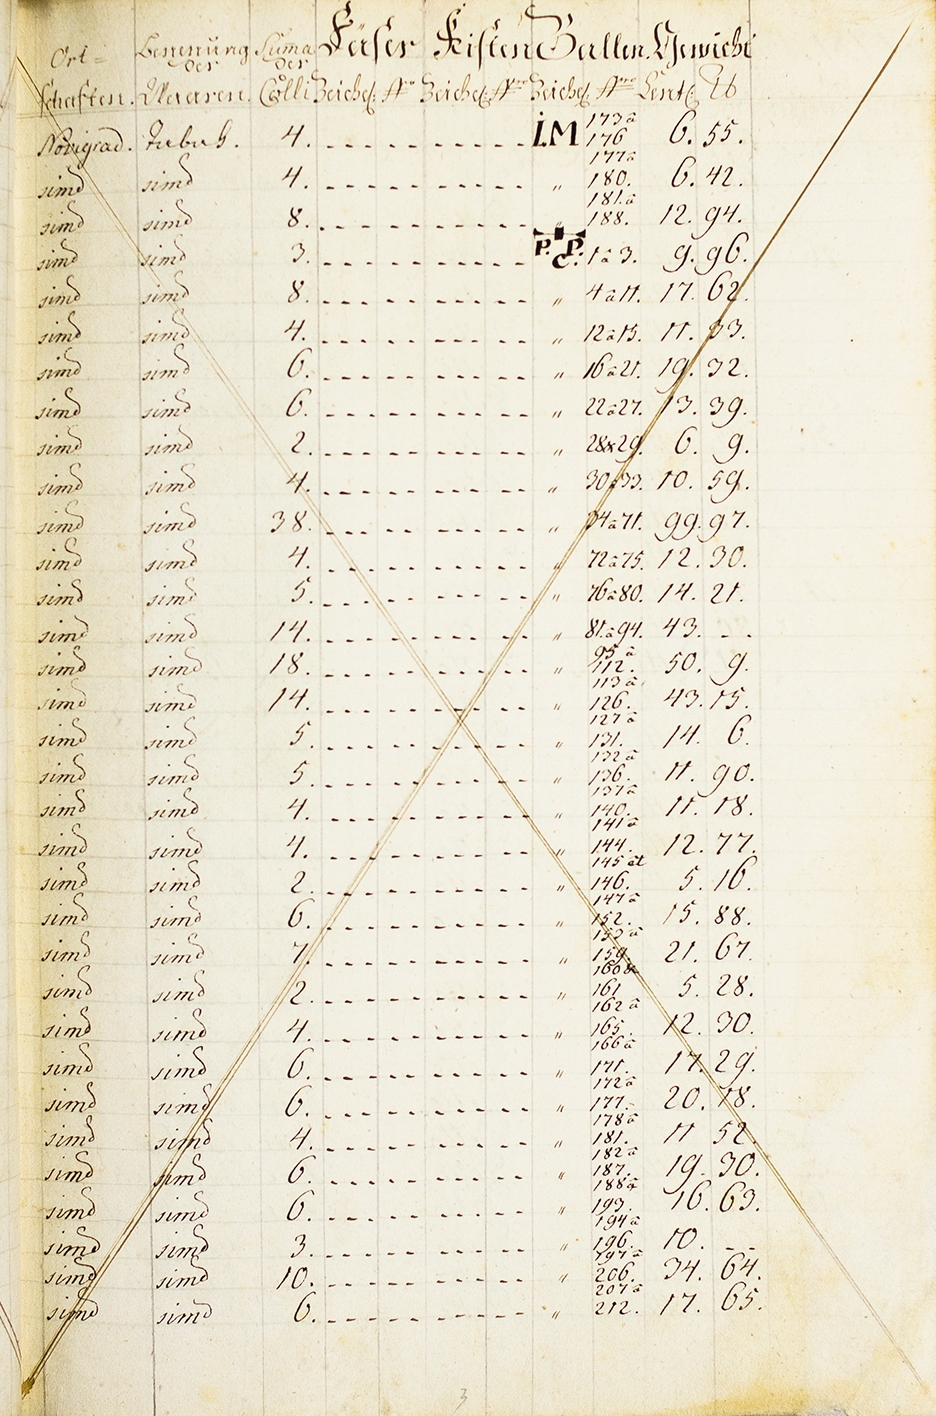 Ort= Benenung der Suma der Fäser Kisten Ballen Gewicht
schaften. Waaren. Colli Zeiche. Nro Zeiche. Nro Zeiche. Nro Cent. lb
Novigrad. Tabak. 4. I.M 173 a 176 6. 55.
simd simd 4. " 177 a 180. 6. 42.
simd simd 8. " 181. a 188. 12. 94.
simd simd 3. P. P. C. 1 a 3. 9. 96.
simd simd 8. " 4 a 11. 17. 62.
simd simd 4. " 12 a 15. 11. 33.
simd simd 6. " 16 a 21. 19. 32.
simd simd 6. " 22 a 27. 13. 39.
simd simd 2. " 28 & 29. 6. 9.
simd simd 4. " 30 a 33. 10. 59.
simd simd 38. " 34 a 71. 99. 97.
simd simd 4. " 72 a 75. 12. 30.
simd simd 5. " 76 a 80. 14. 21.
simd simd 14. " 81. a 94. 43. - -
simd simd 18. " 95 a 112. 50. 9.
simd simd 14. " 113 a 126. 43. 15.
simd simd 5. " 127 a 131. 14. 6.
simd simd 5. " 132 a 136. 11. 90.
simd simd 4. " 137 a 140. 11. 18.
simd simd 4. " 141 a 144. 12. 77.
simd simd 2. " 145 et 146. 5. 16.
simd simd 6. " 147 a 152. 15. 88.
simd simd 7. " 153 a 159. 21. 67.
simd simd 2. " 160 & 161 5. 28.
simd simd 4. " 162 a 165. 12. 30.
simd simd 6. " 166 a 171. 17. 29.
simd simd 6. " 172 a 177. 20. 18.
simd simd 4. " 178 a 181. 11 52.
simd simd 6. " 182 a 187. 19. 30.
simd simd 6. " 188 a 193. 16. 63.
simd simd 3. " 194 a 196. 10. - -
simd simd 10. " 197 a 206. 34. 64.
simd simd 6. " 207 a 212. 17. 65.
3